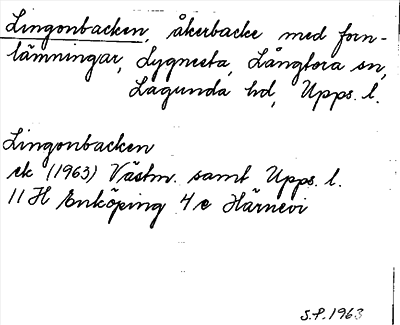 Lingonbacken, åkerbacke med forn-
lämningar, Lygnesta, Långtora sn,
Lagunda hd, Upps. l.
Lingonbacken
ek (1963) Västm. samt Upps. l.
11 H Enköping 4 e Härnevi
S.P. 1963